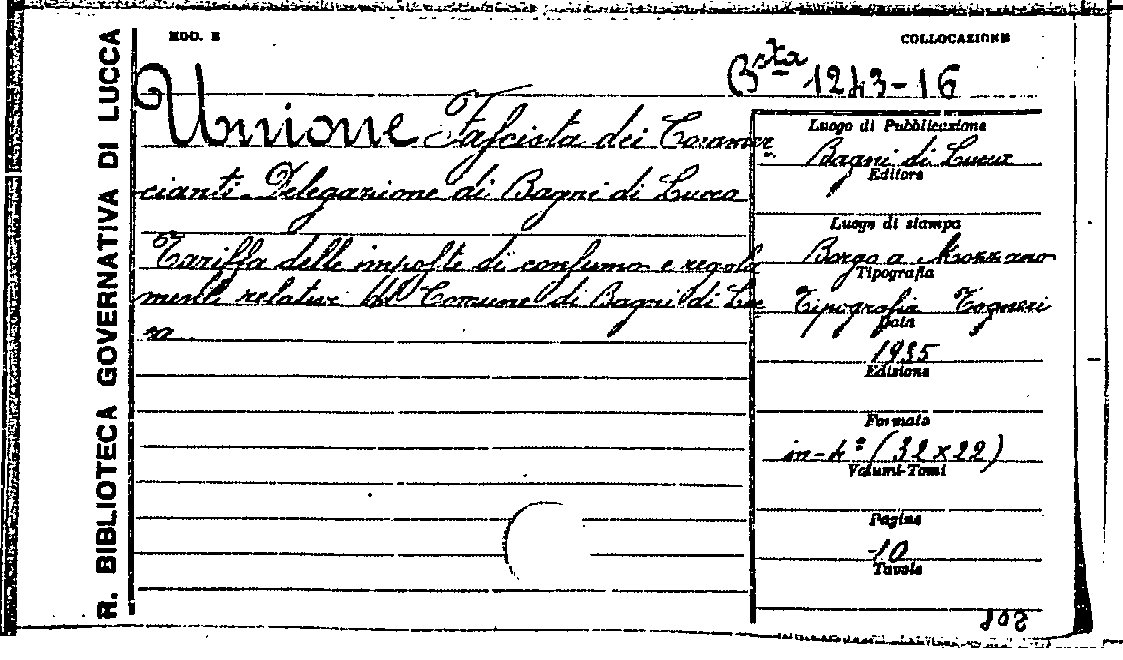 MOD. E
COLLOCAZIONE
R. BIBLIOTECA GOVERNATIVA DI LUCCA
Bsta 1243-16
Unione Fascista dei Commer
cianti. Delegazione di Bagni di Lucca
Tariffa delle imposte di consumo e regola
menti relativi del Comune di Bagni di Luc
ca
Luogo di Pubblicazione
Bagni di Lucca
Editore
Luogo di stampa
Borgo a Mozzano
Tipografia
Tipografia Togneri
Data
1935
Edizione
Formato
in-4º (32x22)
Volumi-Tomi
Pagine
10
Tavole